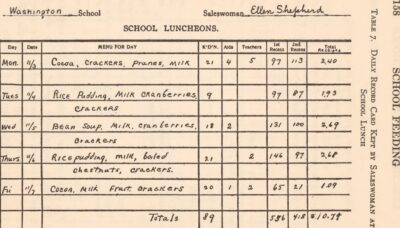 Washington School Saleswoman Ellen Shepherd
SCHOOL LUNCHEONS.
Day Date MENU FOR DAY K'D'N. Aids Teachers 1st Recess 2nd Recess Total Receipts
Mon 11/3 Cocoa, crackers, prunes, milk 21 4 5 97 113 2.40
Tues 11/4 Rice Pudding, Milk cranberries, 9 97 87 1.93
crackers
Wed 11/5 Bean Soup, Milk, cranberries, 18 2 131 100 2.69
crackers
Thurs 11/6 Rice pudding, milk, boiled 21 2 146 97 2.68
chestnuts, crackers.
Fri 11/7 Cocoa, Milk Fruit, crackers 20 1 2 65 21 1.09
Totals 89 536 418 $10.79
158 SCHOOL FEEDING
TABLE 7. DAILY RECORD CARD KEPT BY SALESWOMAN AT
SCHOOL LUNCH